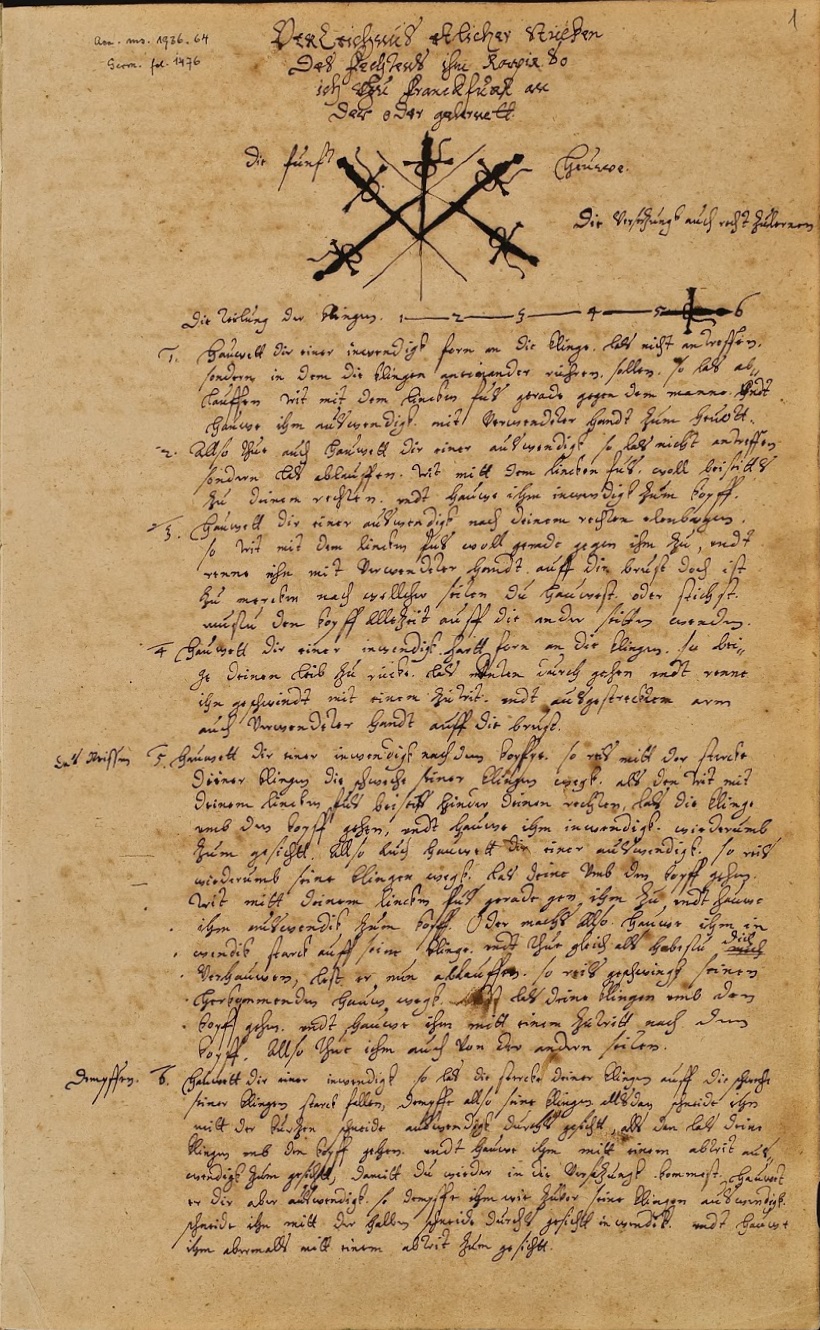 1
Acc. ms. 1936. 64
Germ. fol. 1476
Verzeichnus etlicher stucken
Des fechtens ihm Rappir so
ich zu Franckfurt an
der oder gelernett
die funff
heuwe.
Die versatzung auch recht zulernen
Die teilung der klingen. 1 2 3 4 5 6
1. Hauwett dir einer inwendigk forn an die klinge. las nicht andreffen.
sondern in dem die klingen aneinander rühren sollen. so las ab„
lauffen trit mit dem lincken fus gerade gegen dem manne. undt
hauwe ihm auswendigk. mit verwendeter handt zum heubtt.
2. Allso thue auch hauwett dir einer auswendigk so las nicht andreffen
sondern las ablauffen. trit mitt dem lincken fus. woll beiseitts
zu deinem rechten. undt hauwe ihm inwendigk zum kopff.
3. Hauwett dir einer auswendigk nach deinem rechten elenbogen.
so trit mit dem lincken fus woll gerade gegen ihm zu, undt
renne ihn mit verwendeter handt. auff die brust doch ist
zu mercken nach wellcher seiten du hauwest. oder stichst.
mustu den kopff allezeit auff die ander seitten wenden.
4 Hauwett dir einer inwendigk. hartt forn an die klingen. so bei„
ge deinen leib zu rücke. las unden durch gehen undt renne
ihn geschwindt mit einem zutrit. undt ausgestrecktem arm
auch verwendeter handt auff die brust.
Das Reissen 5. Hauwett dir einer inwendigk nach dem kopffe. so reis mitt der stercke
deiner klingen die schweche seiner klingen wegk. als den trit mit
deinem lincken fus beiseit hinder deinen rechten, las die klinge
umb den kopff gehen, undt hauwe ihm inwendigk. wiederumb
zum gesichtt. Allso auch hauwett dir einer auswendigk. so reis
wiederumb seine klingen wegk. las deine umb den kopff gehen.
trit mitt deinem lincken fus gerade gen ihm zu, undt hauwe
ihm auswendik zum kopff. Oder machs also. hauwe ihm in
wendik starck auff seine klinge. undt thue gleich als habestu dich
verhauwen, lest er nun ablauffen. so reis geschwingk seinen
herkommenden hauw wegk. las deine klingen umb den
kopff gehen. undt hauwe ihm mitt einem zutritt nach dem
kopff. Allso thue ihm auch von der andern seiten.
Dempffen. 6. Hauwett dir einer inwendigk so las die stercke deiner klingen auff die schweche
seiner klingen starck fallen, dempffe also seine klingen alsdan schneide ihm
mitt der kurtzen schneide auswendigk durchs gesichtt, als dan las deine
klingen umb den kopff gehen. undt hauwe ihm mitt einem abtrit aus„
wendigk zum gesichtt, damitt du wieder in die versatzungk kommest. Hauwet
er dir aber auswendigk. so dempffe ihm wie zuvor seine klingen auswendigk.
schneide ihn mitt der halben schneide durchs gesicht inwendik. undt hauwe
ihm abermalls mitt einem abtrit zum gesichtt.